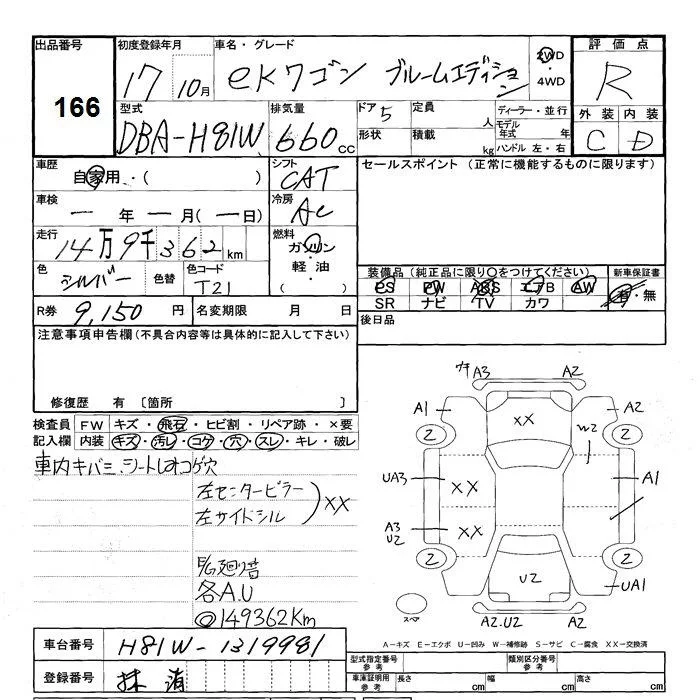 出品番号 初度登録年月 車名・グレード 評価点
166 17 10月 eKワゴン ブルームエディション 2WD ・ 4WD R
型式 排気量 ドア 5 定員 人 ディーラー・並行 外装 内装
DBA-H81W 660 cc 形状 積載 kg モデル年式 年 ハンドル 左・右 C D
車歴 自家用・( ) シフト CAT セールスポイント (正常に機能するものに限ります)
車検 一年一月(一日) 冷房 AC
走行 14万9千362km 燃料 ガソリン・軽油・( )
色 シルバー 色替 色コード T21 装備品(純正品に限り○をつけてください) 新車保証書
PS PW ABS エアB AW 有・無
SR ナビ TV カワ
R券 9,150円 名変期限 月 日 後日品
注意事項申告欄(不具合内容等は具体的に記入して下さい)
修復歴 有 〔箇所 〕
検査員記入欄 FW キズ・飛石・ヒビ割・リペア跡・×要
内装 キズ・汚レ・コゲ・穴・スレ・キレ・破レ
車内キバミ、シート
コゲ穴
左センターピラー
左サイドシル
XX
各A.U
◎149362Km
A3 A2
A1 XX A2
2 W2 2
UA3 XX A1
A3 U2 XX
2 U2 2
UA1
スペア A2.U2 A2
A-キズ E-エクボ U-凹み W-補修跡 S-サビ C-腐食 XX-交換済
車台番号 H81W-1319981
登録番号 抹消
型式指定番号 参考 類別区分番号 参考
車庫証明用 参考 長さ cm 幅 cm 高さ cm